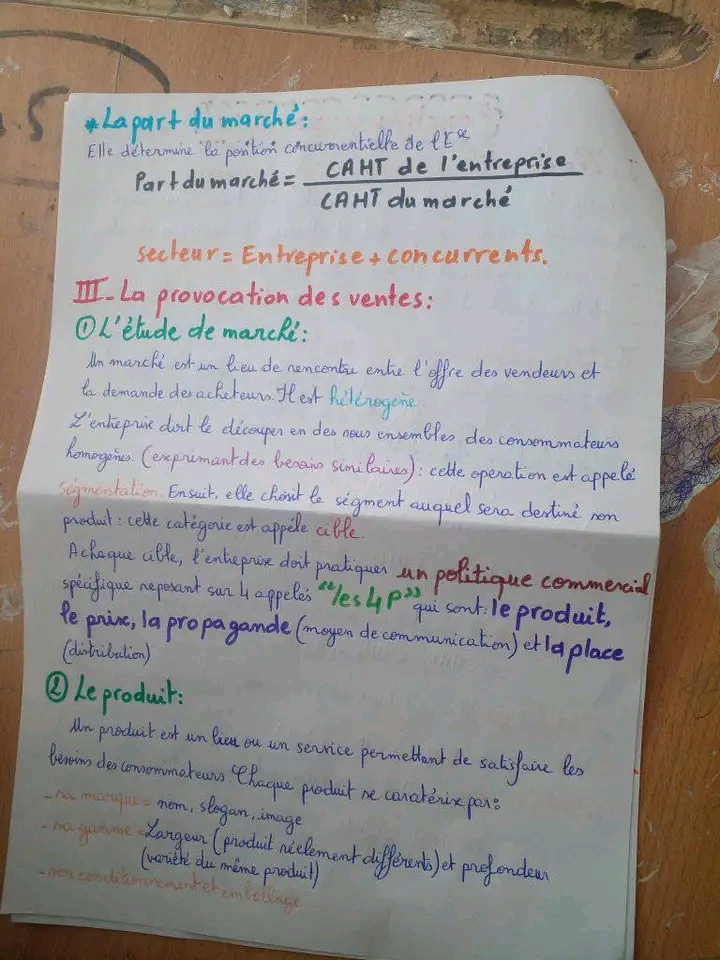 * La part du marché :
Elle détermine la position concurrentielle de l'Ese
Part du marché = CAHT de l'entreprise
CAHT du marché
secteur = Entreprise + concurrents.
III - La provocation des ventes :
① L'étude de marché :
Un marché est un lieu de rencontre entre l'offre des vendeurs et
la demande des acheteurs. Il est hétérogène
L'entreprise doit le découper en des nous ensembles des consommateurs
homogènes. (exprimant des besoins similaires) : cette operation est appelé
ségmentation. Ensuit, elle choisit le ségment auquel sera destiné son
produit : cette catégorie est appéle cible.
A chaque cible, l'entreprise doit pratiquer un politique commercial
spécifique reposant sur 4 appelés "les 4 P" qui sont : le produit,
le prix, la propagande (moyen de communication) et la place
(distribution)
② Le produit :
Un produit est un bien ou un service permettant de satisfaire les
bésoins des consommateurs. Chaque produit se caratérise par :
- sa marque = nom, slogan, image
- sa gamme = Largeur (produit réelement différents) et profondeur
(variété du même produit)
- son conditionnement et emballage